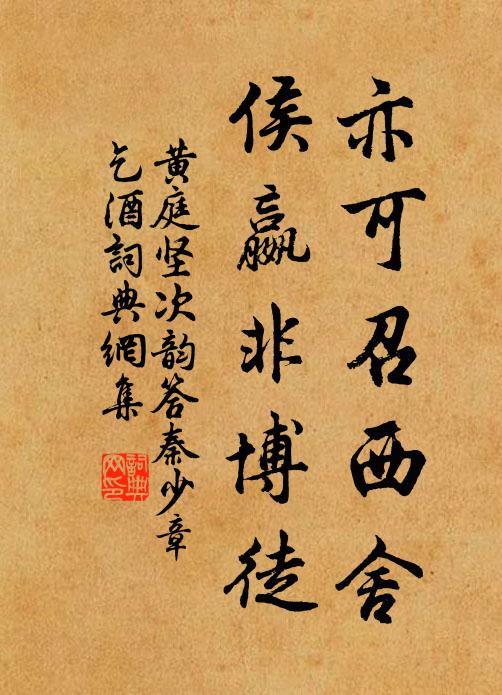 亦可召西舍
侯嬴非博徒
黄庭坚次韵答秦少章
乞酒詞典網集
詞典
网印